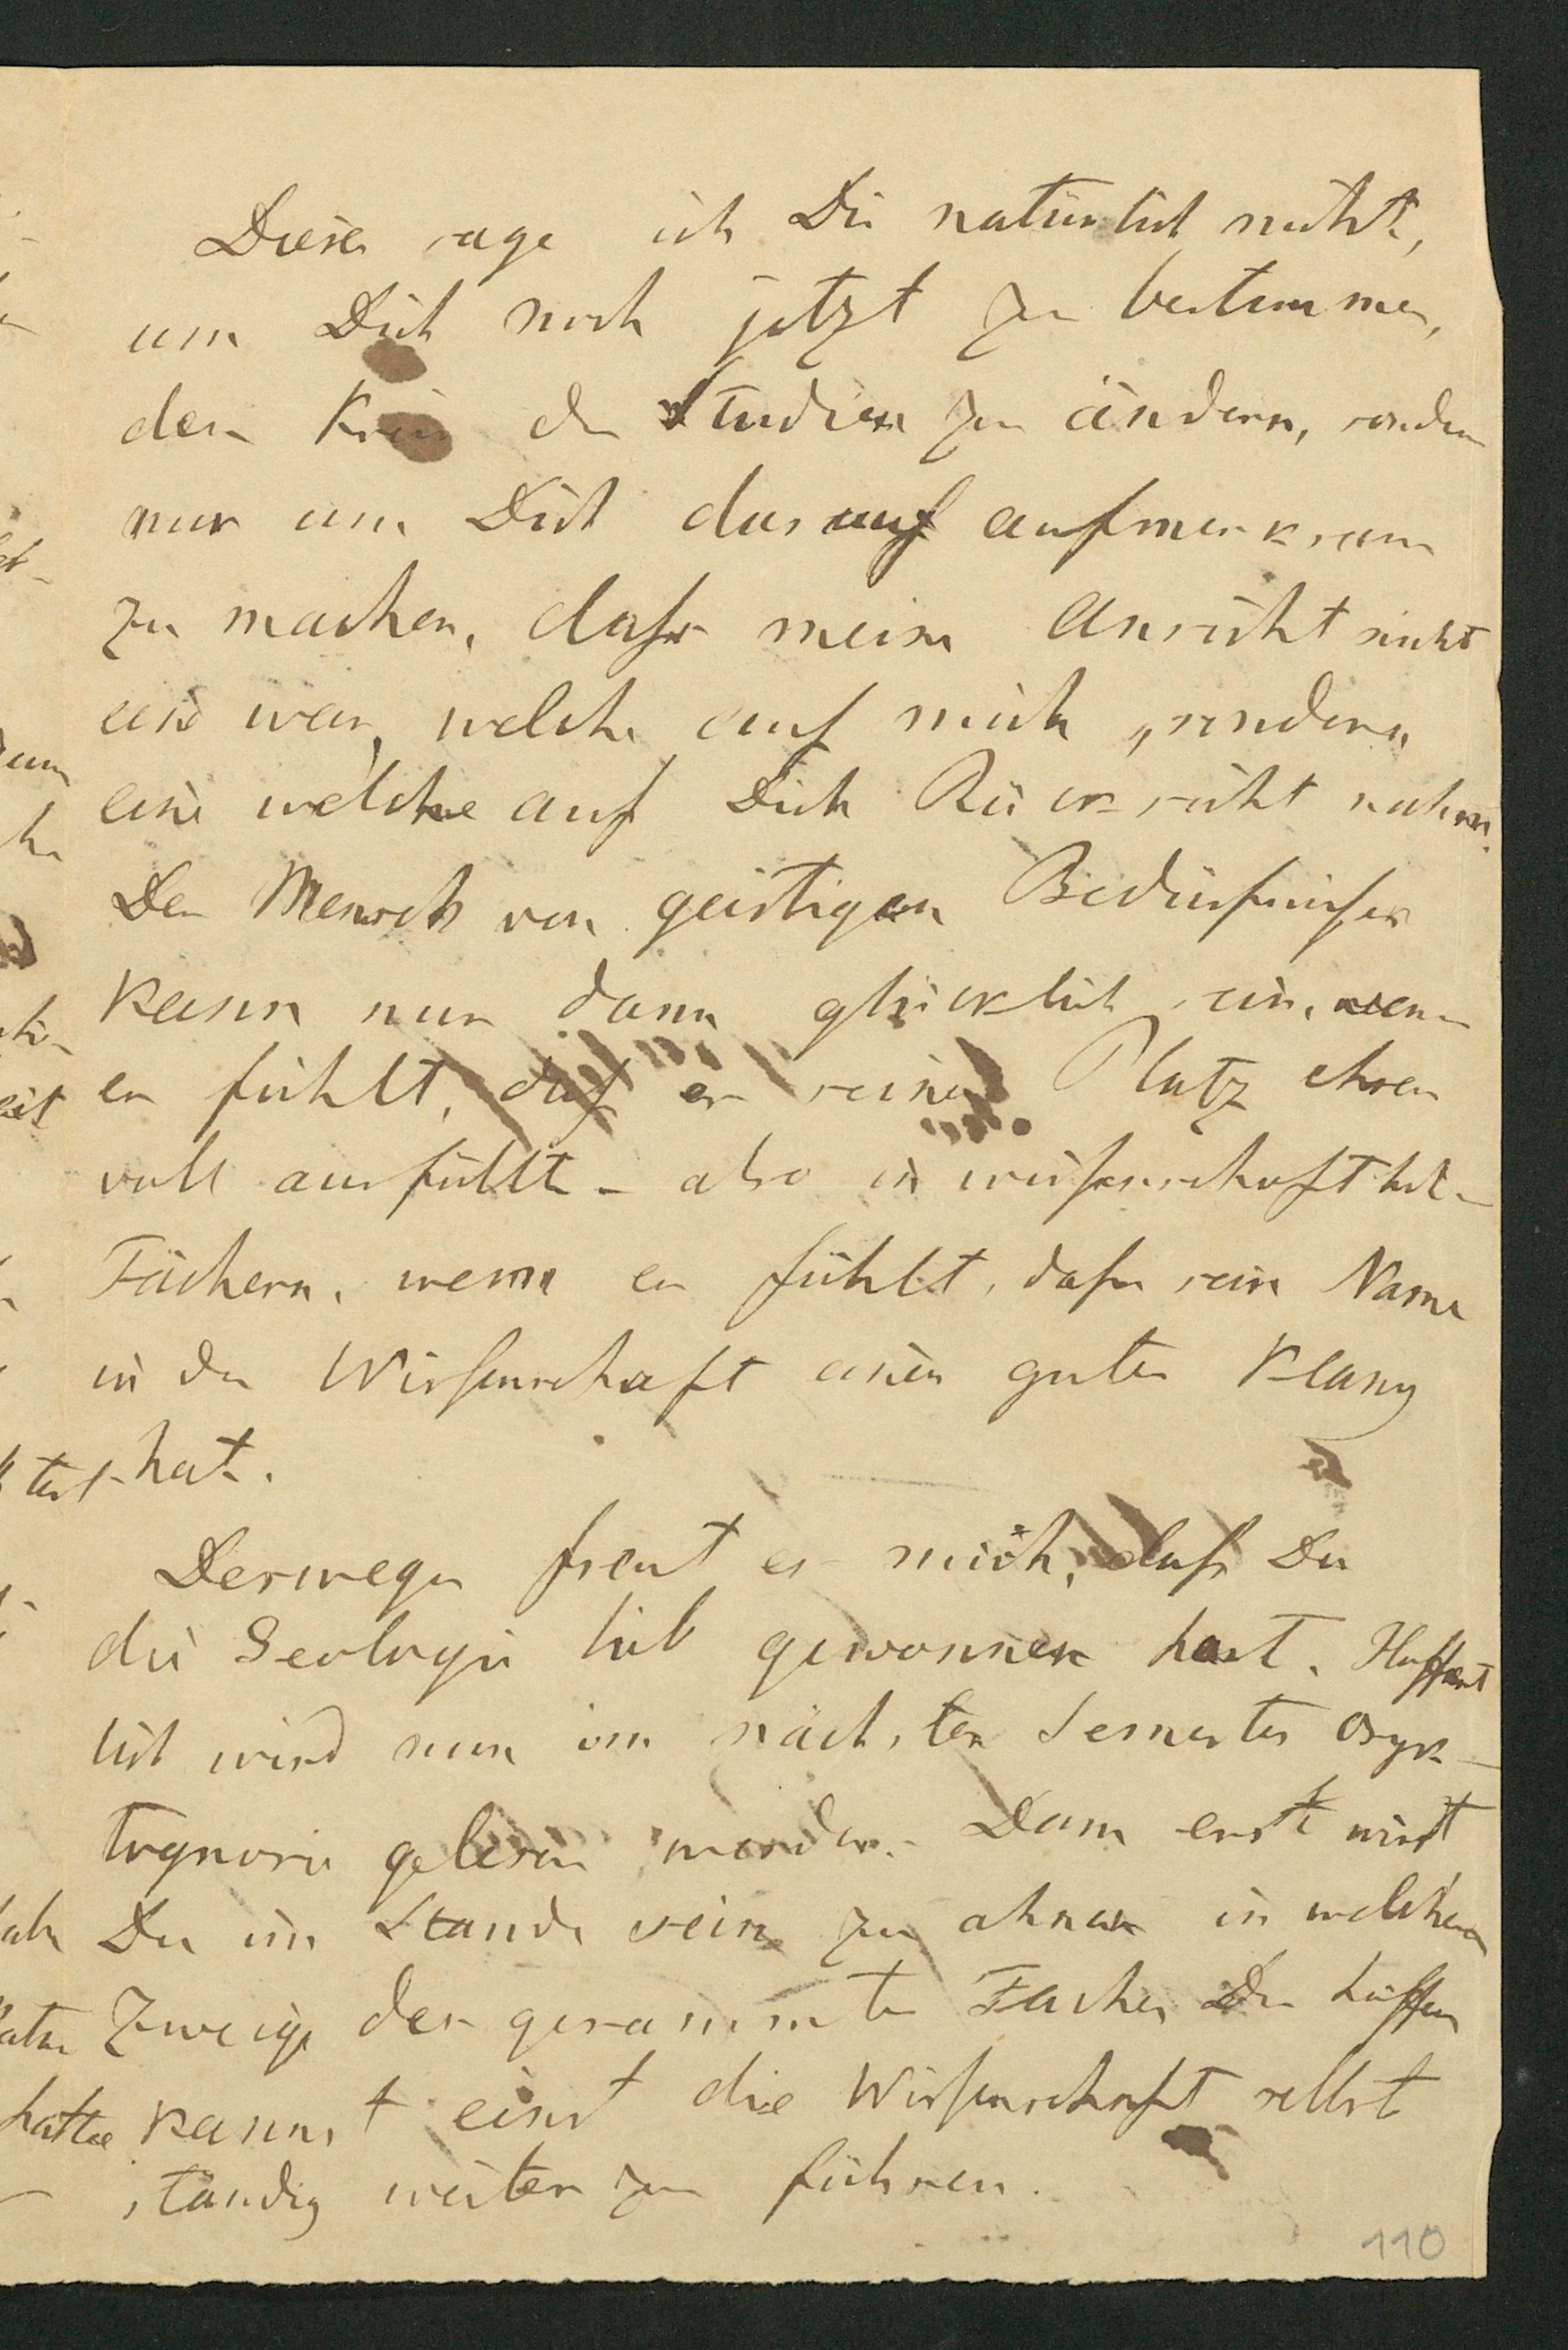 Dieses sage ich Dir natürlich nicht,
um Dich noch jetzt zu bestimmen,
den Kreis der Studien zu ändern, sondern
nur um Dich darauf aufmerksam
zu machen, dass meine Ansicht nicht
eine war, welche auf mich, sondern
eine welche auf Dich Rücksicht nahm.
Der Mensch von geistigen Bedürfnissen
kann nur dann glücklich sein, wenn
er fühlt, dass er seinen Platz ehren
voll ausfüllt – also in wissenschaftlichen
Fächern, wenn er fühlt, dass sein Name
in der Wissenschaft einen guten Klang
hat.
Deswegen freut es mich, dass Du
die Geologie lieb gewonnen hast. Hoffent
lich wird nun im nächsten Semester Oryk-
tognosie gelesen werden. Dann erst wirst
Du im Stande sein zu ahnen in welchem
Zweige des gesammten Faches Du hoffen
kannst einst die Wissenschaft selbst
ständig weiter zu führen.
110